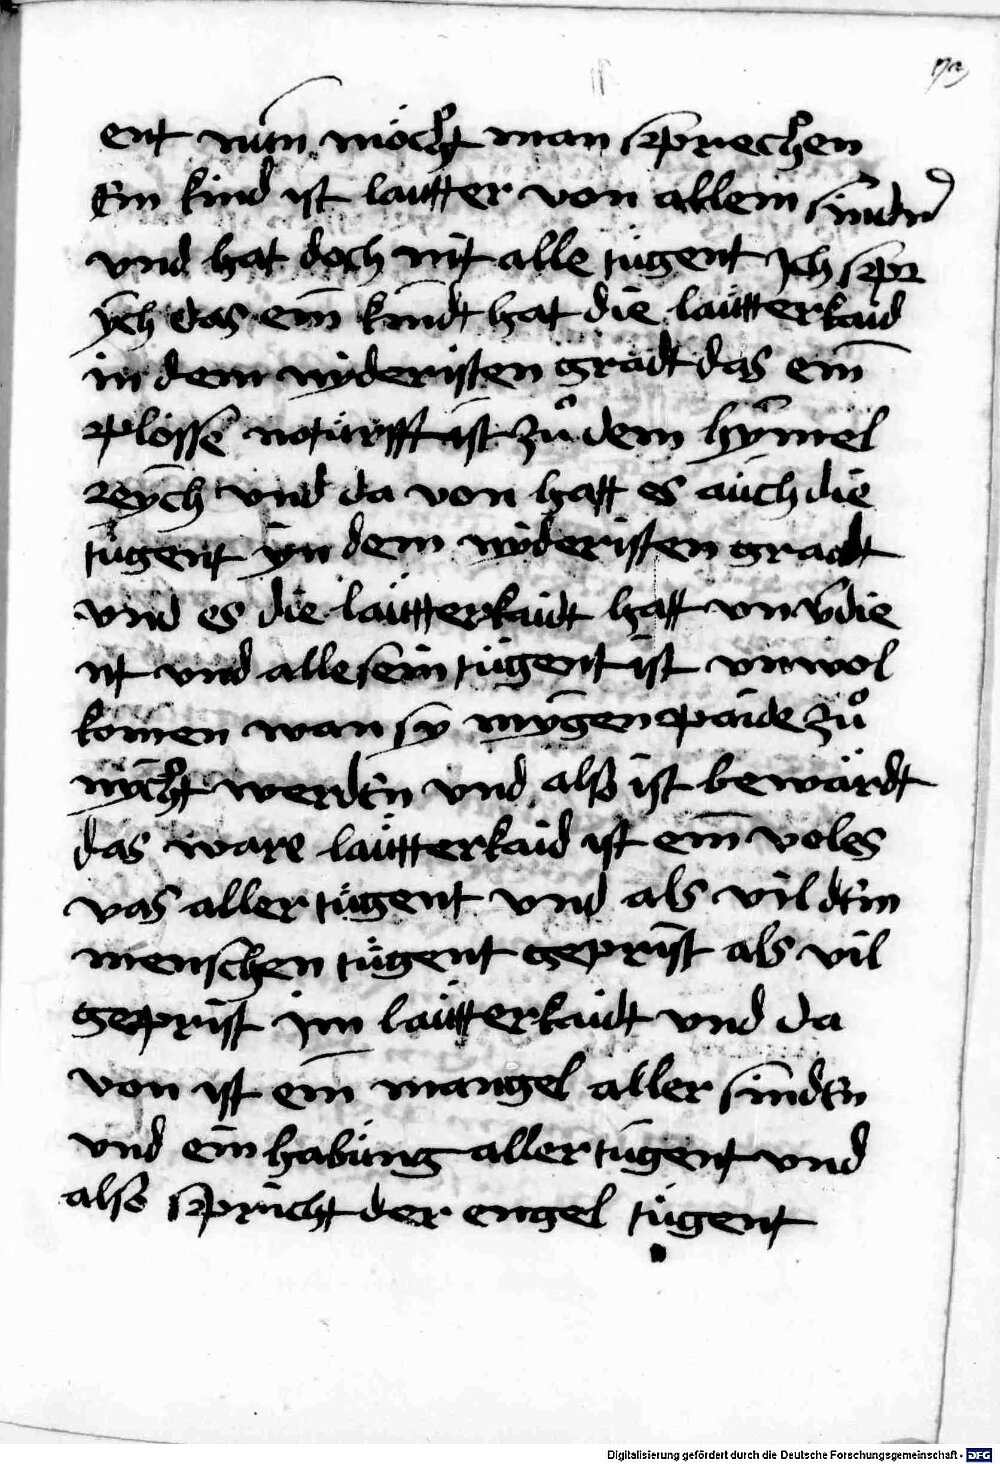 ent nün möcht man sprechen
Ein kind ist lautter von allem sündn
vnd hat doch nit alle tügent Jch spr
ÿch das ein kindt hat die laütterkaid
in dem nyderisten gradt das ein
plosse notürfft ist zů dem hymel
reÿch vnd da von hatt es aüch die
tügent ÿn dem nyderisten gradt
vnd es die laütterkaidt hatt vnvdie
nt vnd alle sein tügent ist vnwol
komen wan sy mÿgen paide zů
nÿcht werden vnd alß ist bewärdt
das ware laütterkaid ist ein voles
vas aller tügent vnd als vil dem
menschen tügent geprist als vil
geprist im laütterkaidt vnd da
von ist ein mangel aller sünden
vnd ein habüng aller tügent vnd
alse spricht der engel tügent
Digitalisierung gefördert durch die Deutsche Forschungsgemeinschaft - DFG